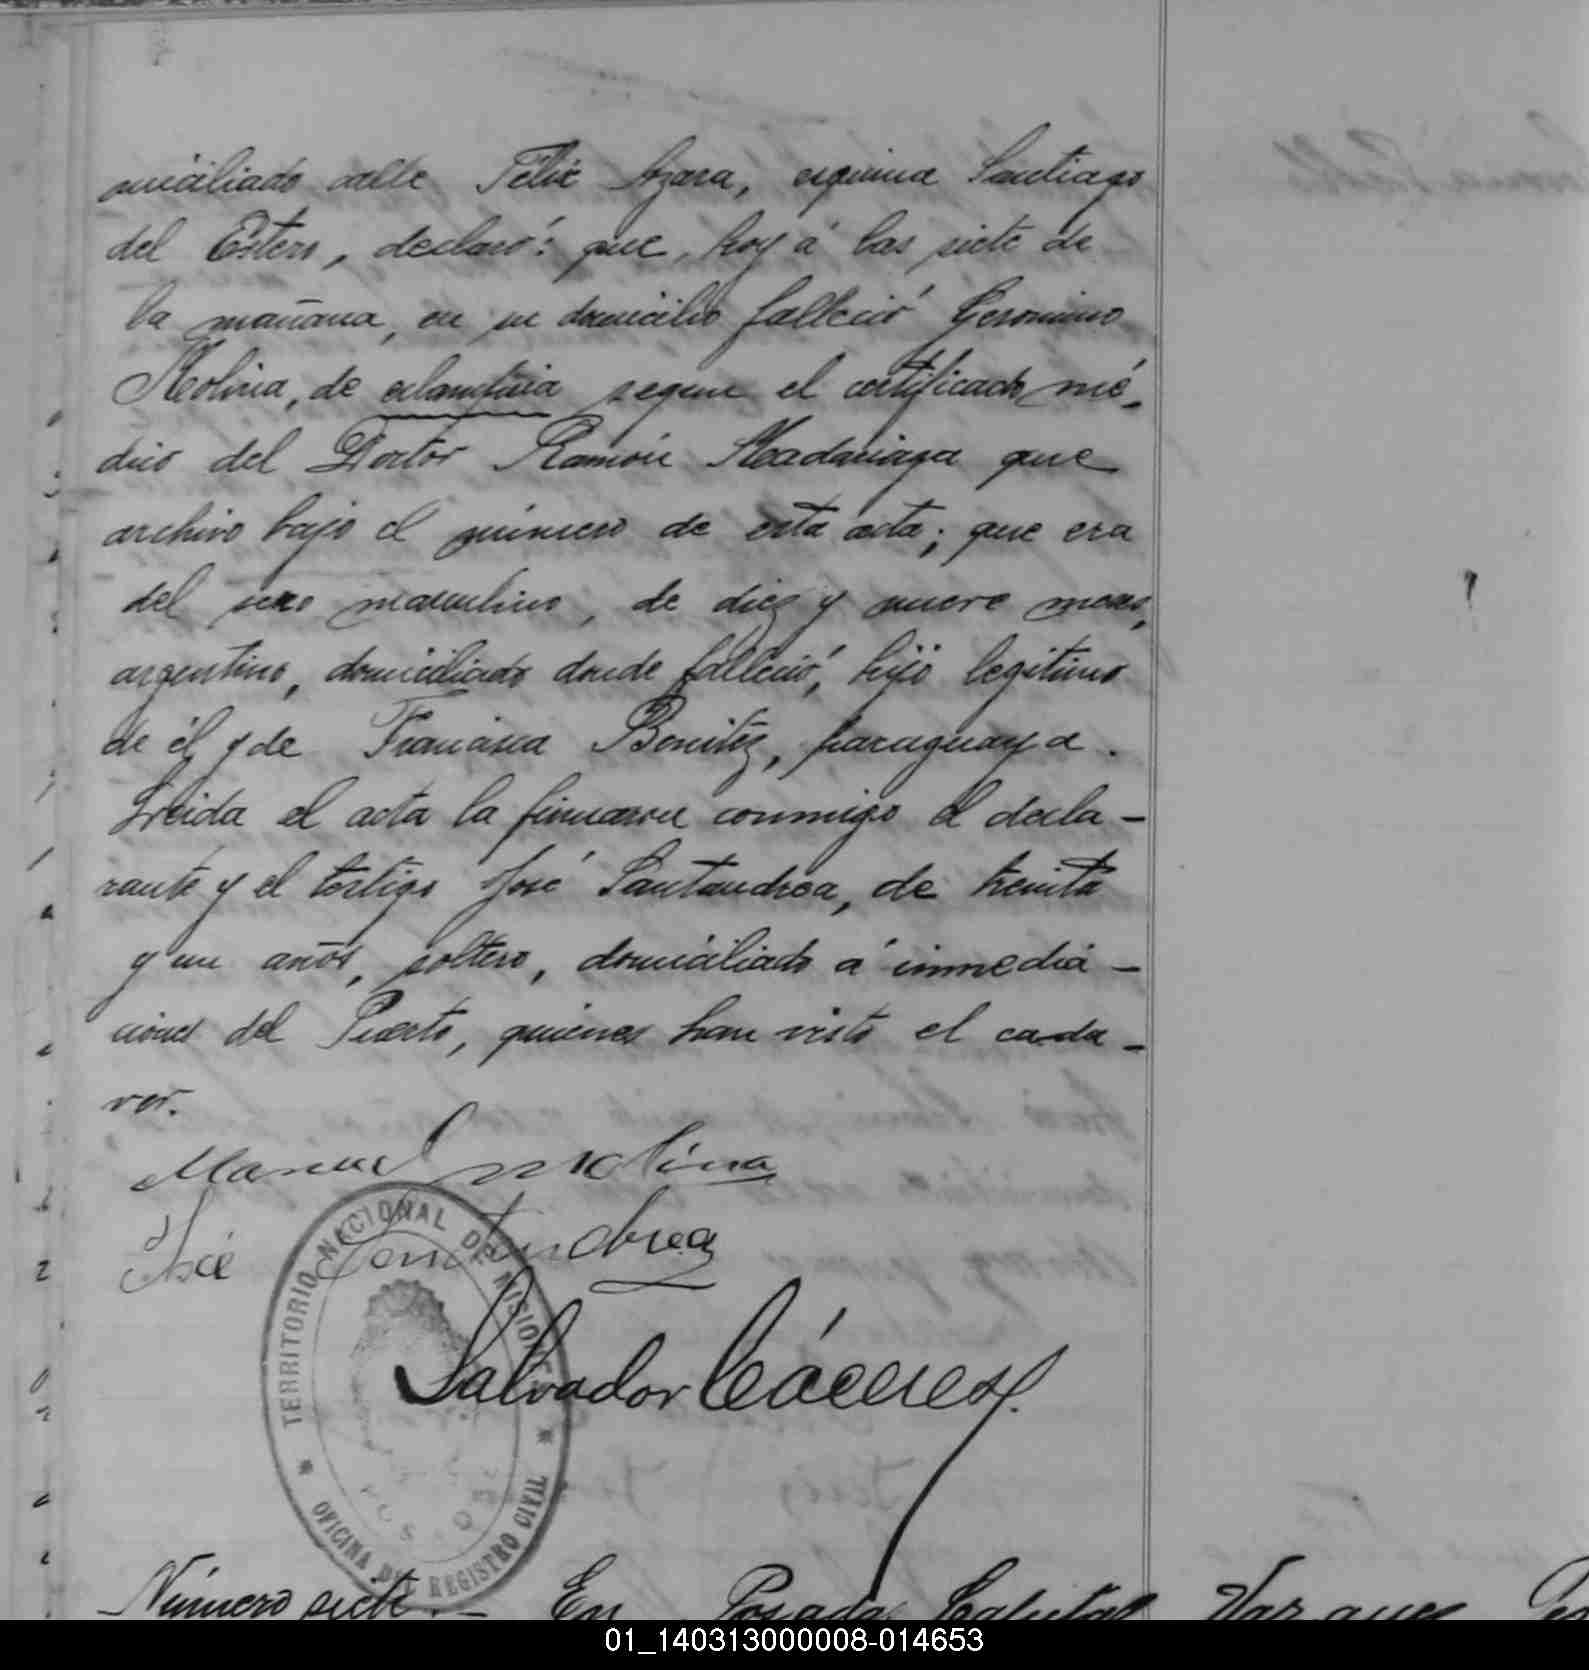 miciliado calle Félix Azara, esquina Santiago
del Estero, declaró: que, hoy á las siete de
la mañana, en su domicilio falleció Geronimo
Molina, de eclampsia segun el certificado mé-
dico del Doctor Ramón Madariaga que
archivo bajo el número de esta acta; que era
del sexo masculino, de diez y nueve meses,
argentino, domiciliado donde falleció, hijo legítimo
de él y de Francisca Benitez, paraguaya.
Leida el acta la firmaron conmigo el decla-
rante y el testigo José Santandrea, de treinta
y un años, soltero, domiciliado á inmedia-
ciones del Puerto, quienes han visto el cada-
ver.
Manuel Molina
José Santandrea
TERRITORIO NACIONAL DE MISIONES
Salvador Cáceres
OFICINA DEL REGISTRO CIVIL
Número siete.- En Posadas Capital
01_140313000008-014653